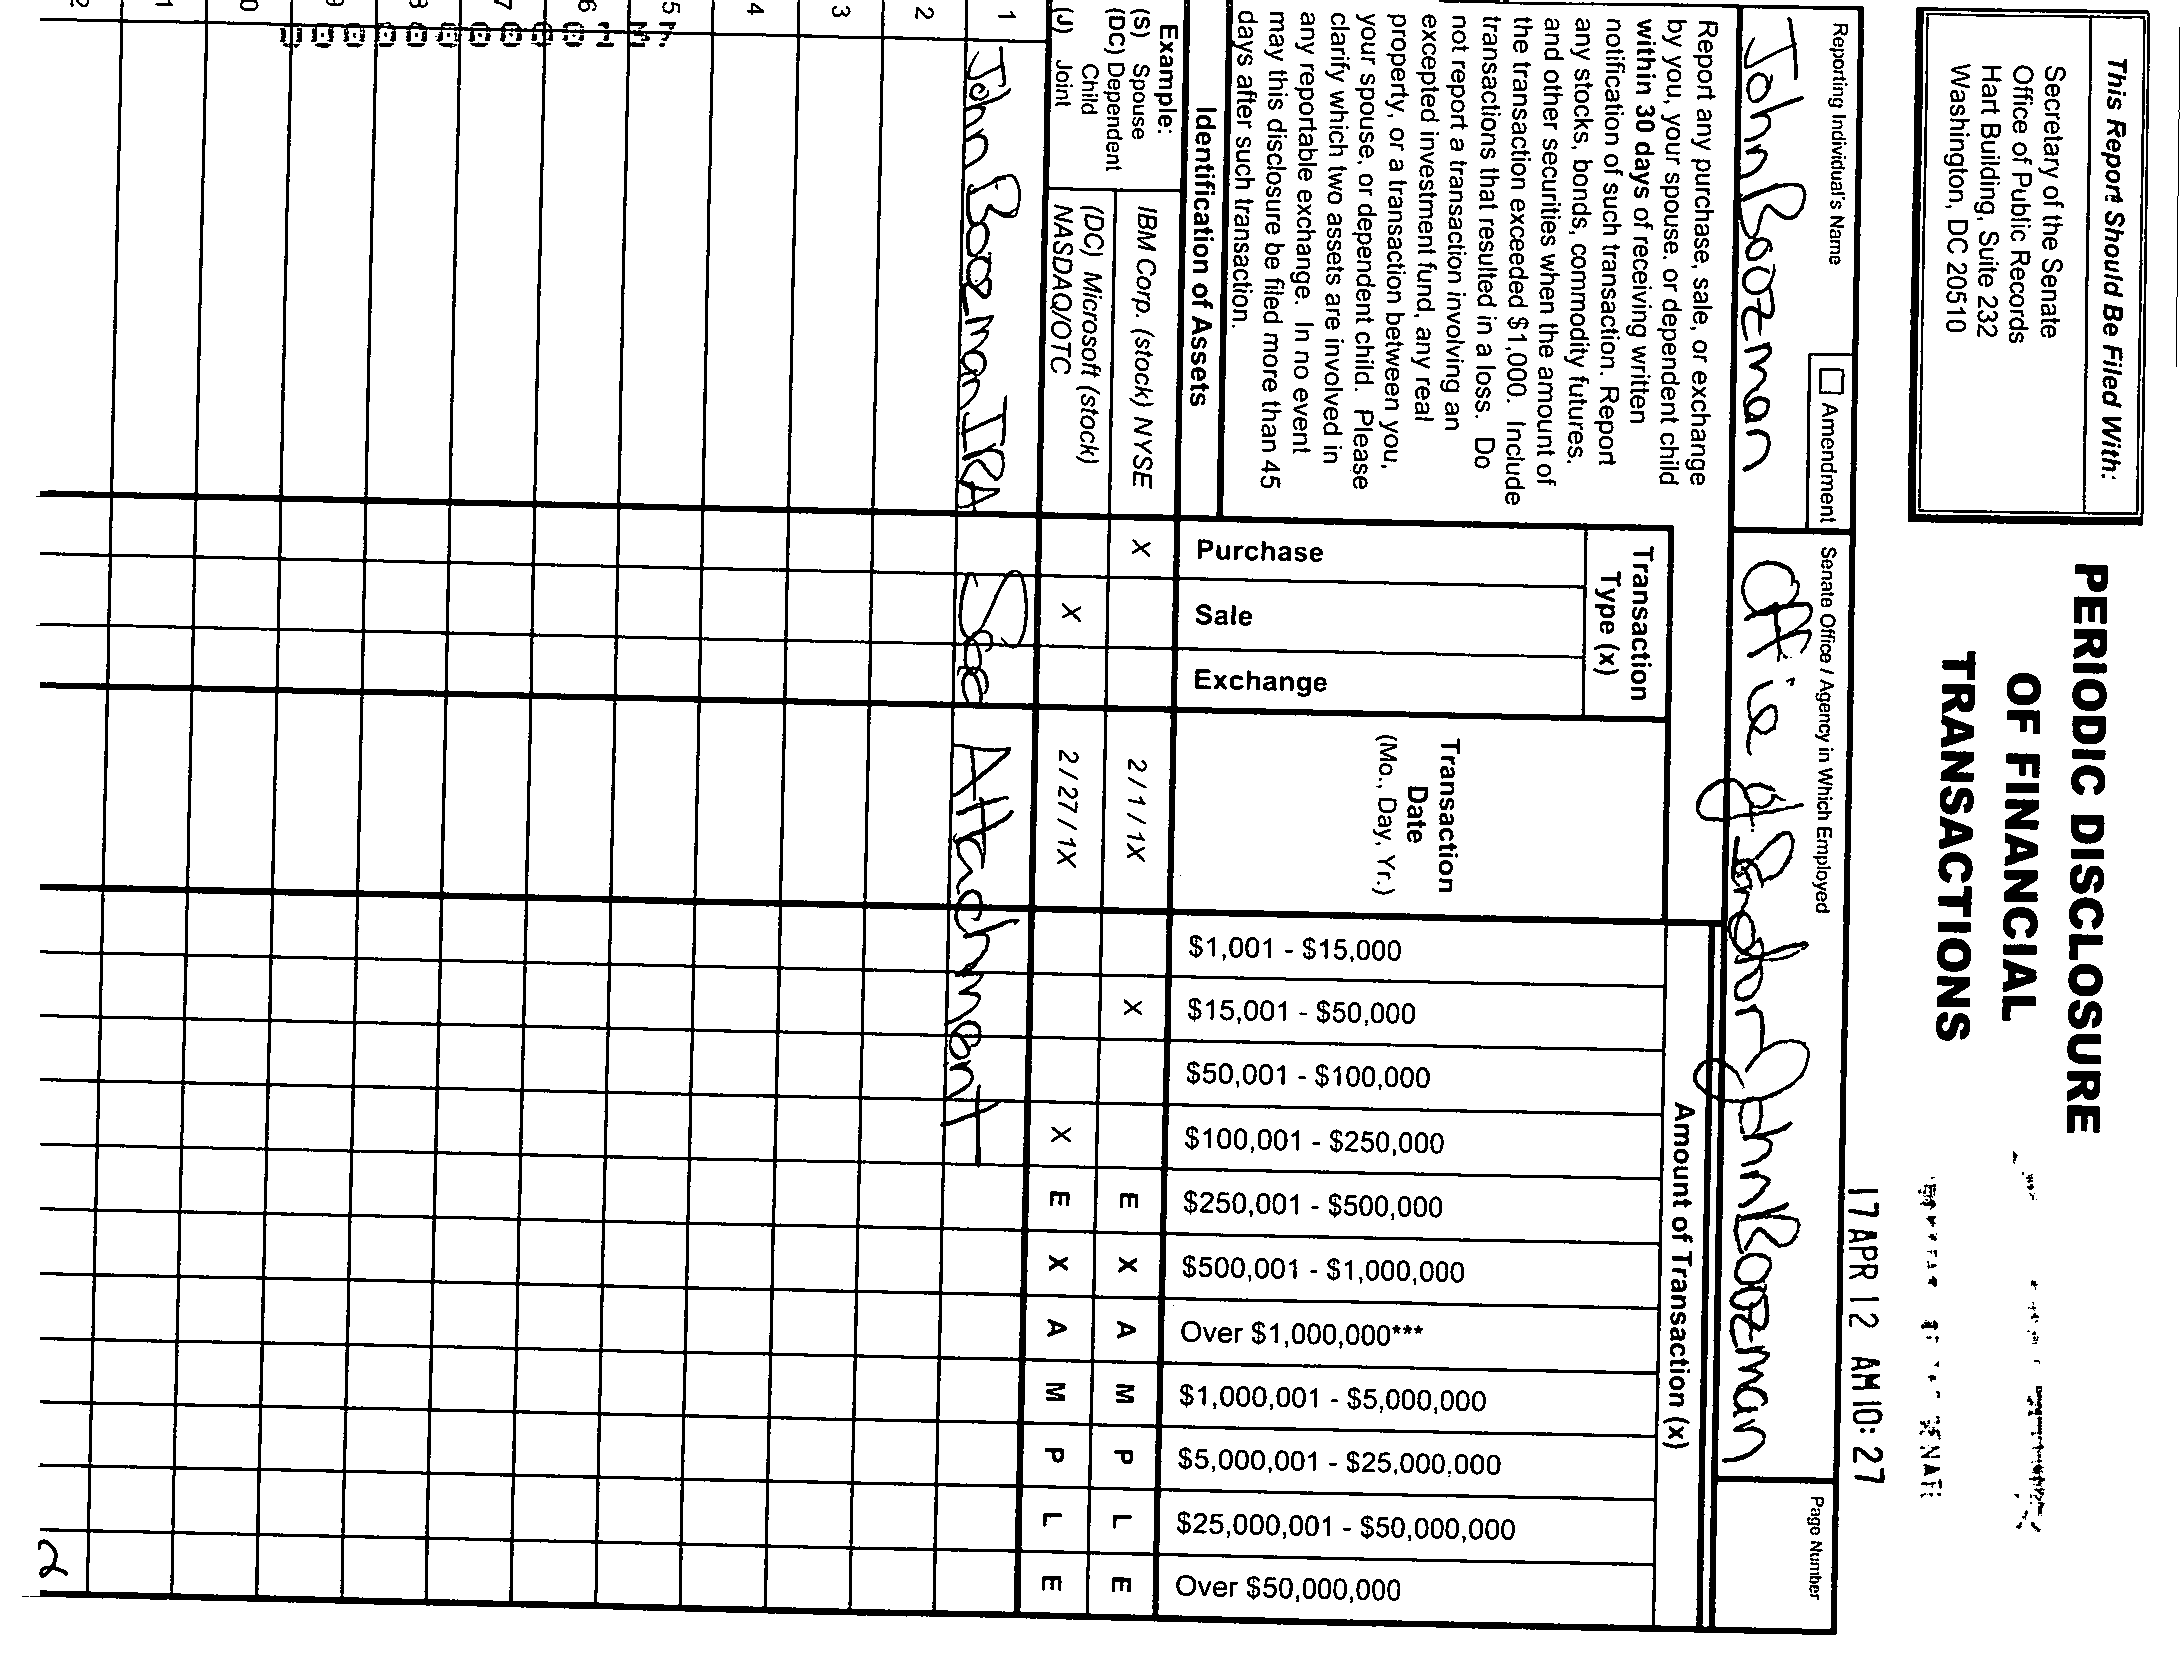 This Report Should Be Filed With:
Secretary of the Senate
Office of Public Records
Hart Building, Suite 232
Washington, DC 20510
PERIODIC DISCLOSURE
OF FINANCIAL
TRANSACTIONS
17 APR 12 AM 10:27
Reporting Individual's Name
John Boozman
Amendment
Senate Office / Agency in Which Employed
Office of Senator John Boozman
Page Number
Report any purchase, sale, or exchange
by you, your spouse, or dependent child
within 30 days of receiving written
notification of such transaction. Report
any stocks, bonds, commodity futures,
and other securities when the amount of
the transaction exceeded $1,000. Include
transactions that resulted in a loss. Do
not report a transaction involving an
excepted investment fund, any real
property, or a transaction between you,
your spouse, or dependent child. Please
clarify which two assets are involved in
any reportable exchange. In no event
may this disclosure be filed more than 45
days after such transaction.
Identification of Assets
Transaction
Type (x)
Purchase
Sale
Exchange
Transaction
Date
(Mo., Day, Yr.)
Amount of Transaction (x)
$1,001 - $15,000
$15,001 - $50,000
$50,001 - $100,000
$100,001 - $250,000
$250,001 - $500,000
$500,001 - $1,000,000
Over $1,000,000***
$1,000,001 - $5,000,000
$5,000,001 - $25,000,000
$25,000,001 - $50,000,000
Over $50,000,000
Example:
(S) Spouse
(DC) Dependent
Child
(J) Joint
IBM Corp. (stock) NYSE X 2/1/1X X E X A M P L E
(DC) Microsoft (stock)
NASDAQ/OTC X 2/27/1X X E X A M P L E
1 John Boozman IRA See Attachment
2
3
4
5
6
7
8
9
0
1
2
2